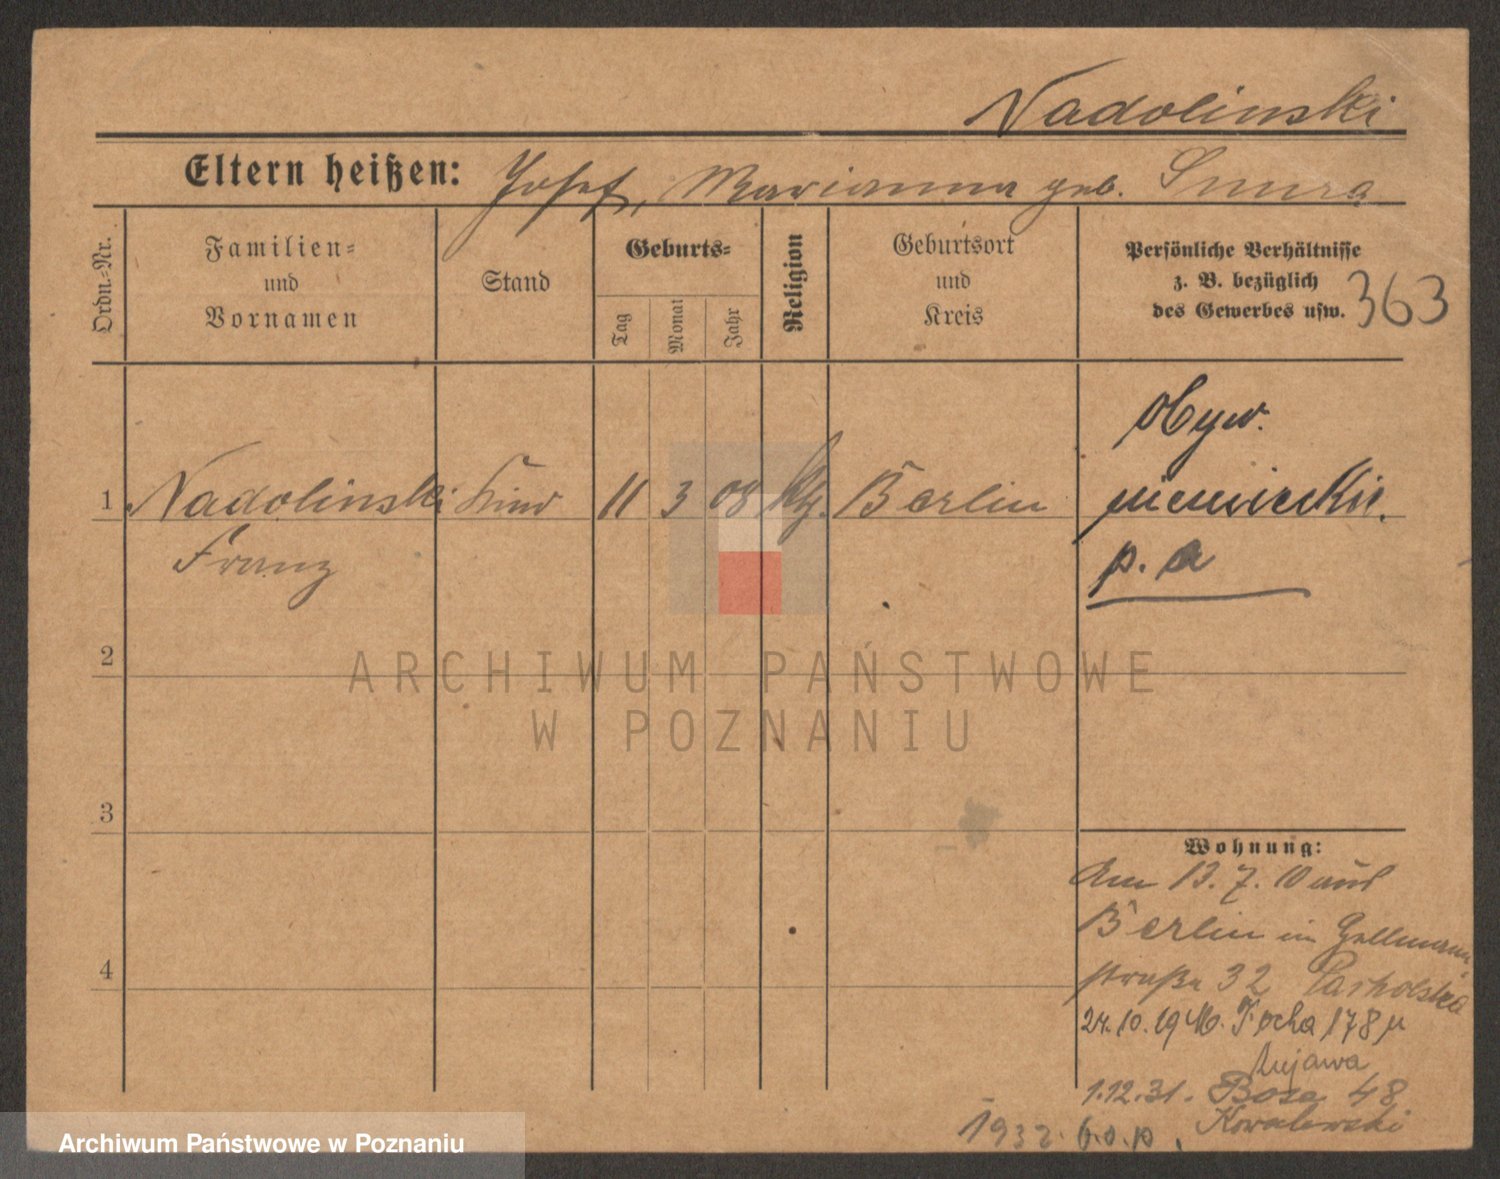 Nadolinski
Eltern heißen: Josef, Marianna geb. Smura
Ordn.-Nr.
Familien-
und
Vornamen
Stand
Geburts-
Tag
Monat
Jahr
Religion
Geburtsort
und
Kreis
Persönliche Verhältnisse
z. B. bezüglich
des Gewerbes usw.
363
obyw.
1 Nadolinski Kind 11 3 08 kth. Berlin niemieckie.
Franz
p. a
2
ARCHIWUM PAŃSTWOWE
W POZNANIU
3
Wohnung:
Am 13. 7. 10 aus
Berlin in
4
straße 32
24. 10. 19 M. Focha 178
Kujawa
1.12.31. Bosa 48
Kowalewski
1932.
Archiwum Państwowe w Poznaniu